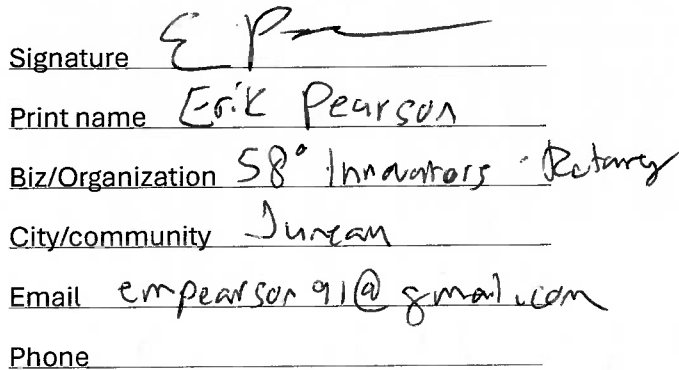 Signature E P
Print name Erik Pearson
Biz/Organization 58° Innovators · Rotary
City/community Juneau
Email empearson91@gmail.com
Phone